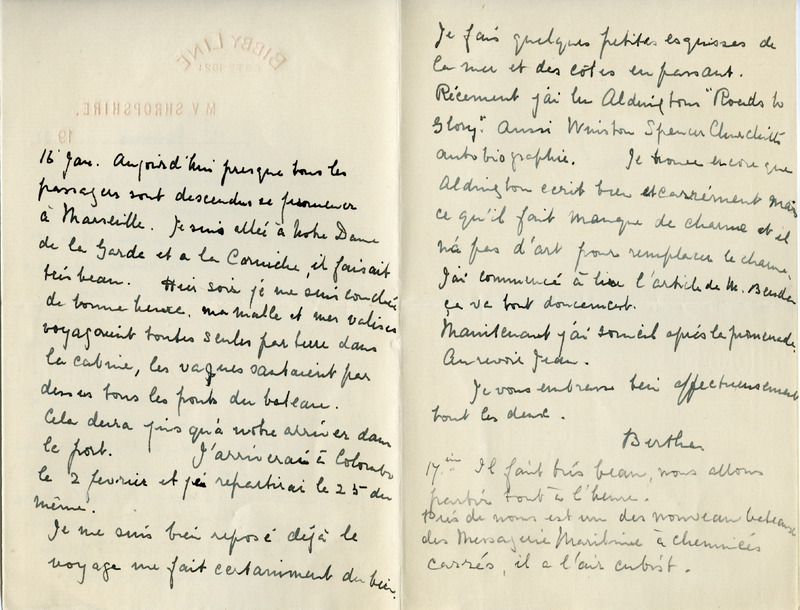 BIBBY LINE
M.V. SHROPSHIRE,
19
16 Jan. Aujoird'hui presque tous les
passagers sont descendus se promener
à Marseille. Je suis allée à Notre Dame
de la Garde et a la Corniche, il faisait
très beau. Hier soir je me suis couchée
de bonne heure. ma malle et mes valises
voyagaient toutes seules par terre dans
la cabine, les vagues sautaient par
dessus tous les ponts du bateau.
Cela dura jusqu'à notre arriver dans
le port. J'arriverai à Colombo
le 2 fevrier et j'en repartirai le 25 du
même.
Je me suis bien reposé déjà le
voyage me fait certainment du bien.
Je fais quelques petites esquisses de
la mer et des côtes en passant.
Récement j'ai lu Aldingtons "Roads to
Glory". Aussi Winston Spencer Churchills
autobiographie. Je trouve encore que
Aldington ecrit bien et carrément mais
ce qu'il fait manque de charme et il
n'a pas d'art pour remplacer le charme.
J'ai commencé à lire l'article de M. Benda
ça va tout doucement.
Maintenant j'ai someil après la promenade.
Au revoir Jean.
Je vous embrasse bien affectueusement
tout les deux.
Berthe
17 Il fait très beau, nous allons
partir tout à l'heure.
Près de nous est un des nouveau bateaux
des Messagerie Maritime à cheminées
carrés, il a l'air cubist.